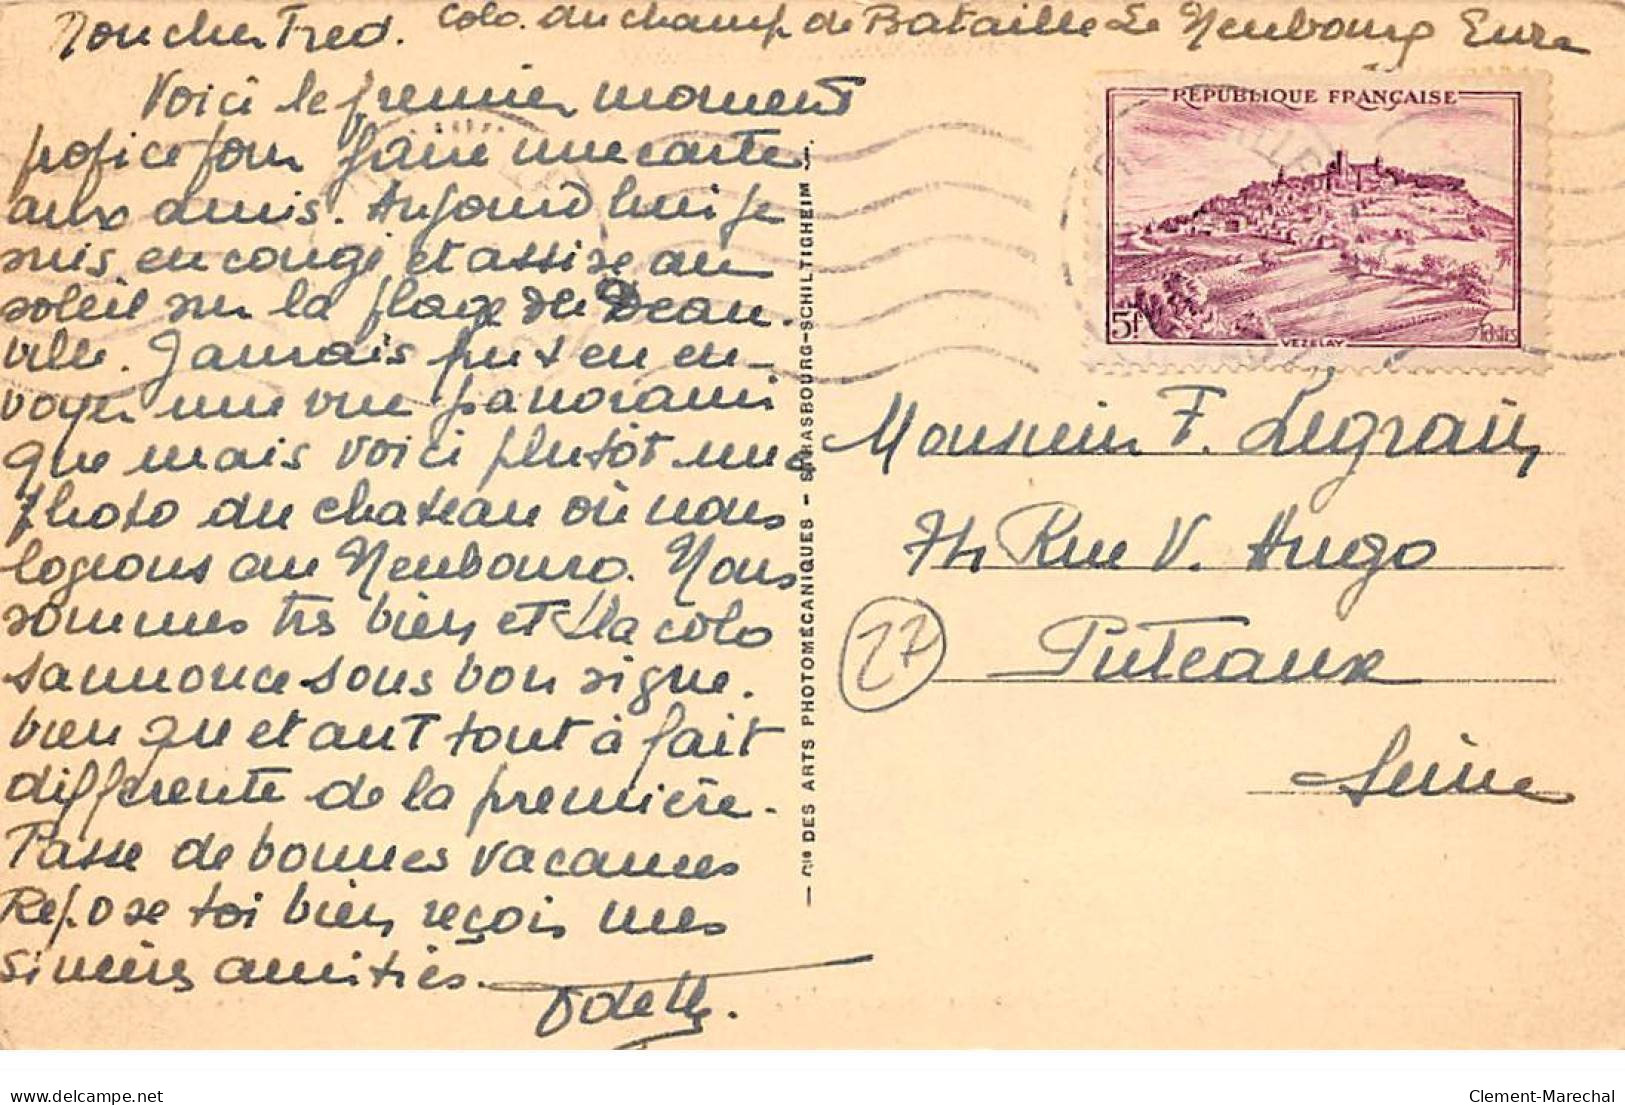 Mon cher Fred. Colo. du champ de Bataille Le Neubourg Eure
Voici le premier moment
propice pour faire une carte
aux amis. Aujourd'hui je
suis en congé et assise au
soleil sur la plage de Deau-
ville. J'aurais put en en-
voyer une vue panorami
que mais voici plutôt une
photo du chateau où nous
logeons au Neubourg. Nous
sommes trs bien et la colo
sannonce sous bon signe.
bien que etant tout à fait
differente de la première.
Passe de bonnes vacances
Repose toi bien reçois mes
sincères amitiés.
Odette.
Cie DES ARTS PHOTOMÉCANIQUES - STRASBOURG-SCHILTIGHEIM
RÉPUBLIQUE FRANÇAISE
5f
VÉZELAY
Postes
Monsieur F. Legrain
74 Rue V. Hugo
27
Puteaux
Seine
delcampe.net
Clement-Marechal